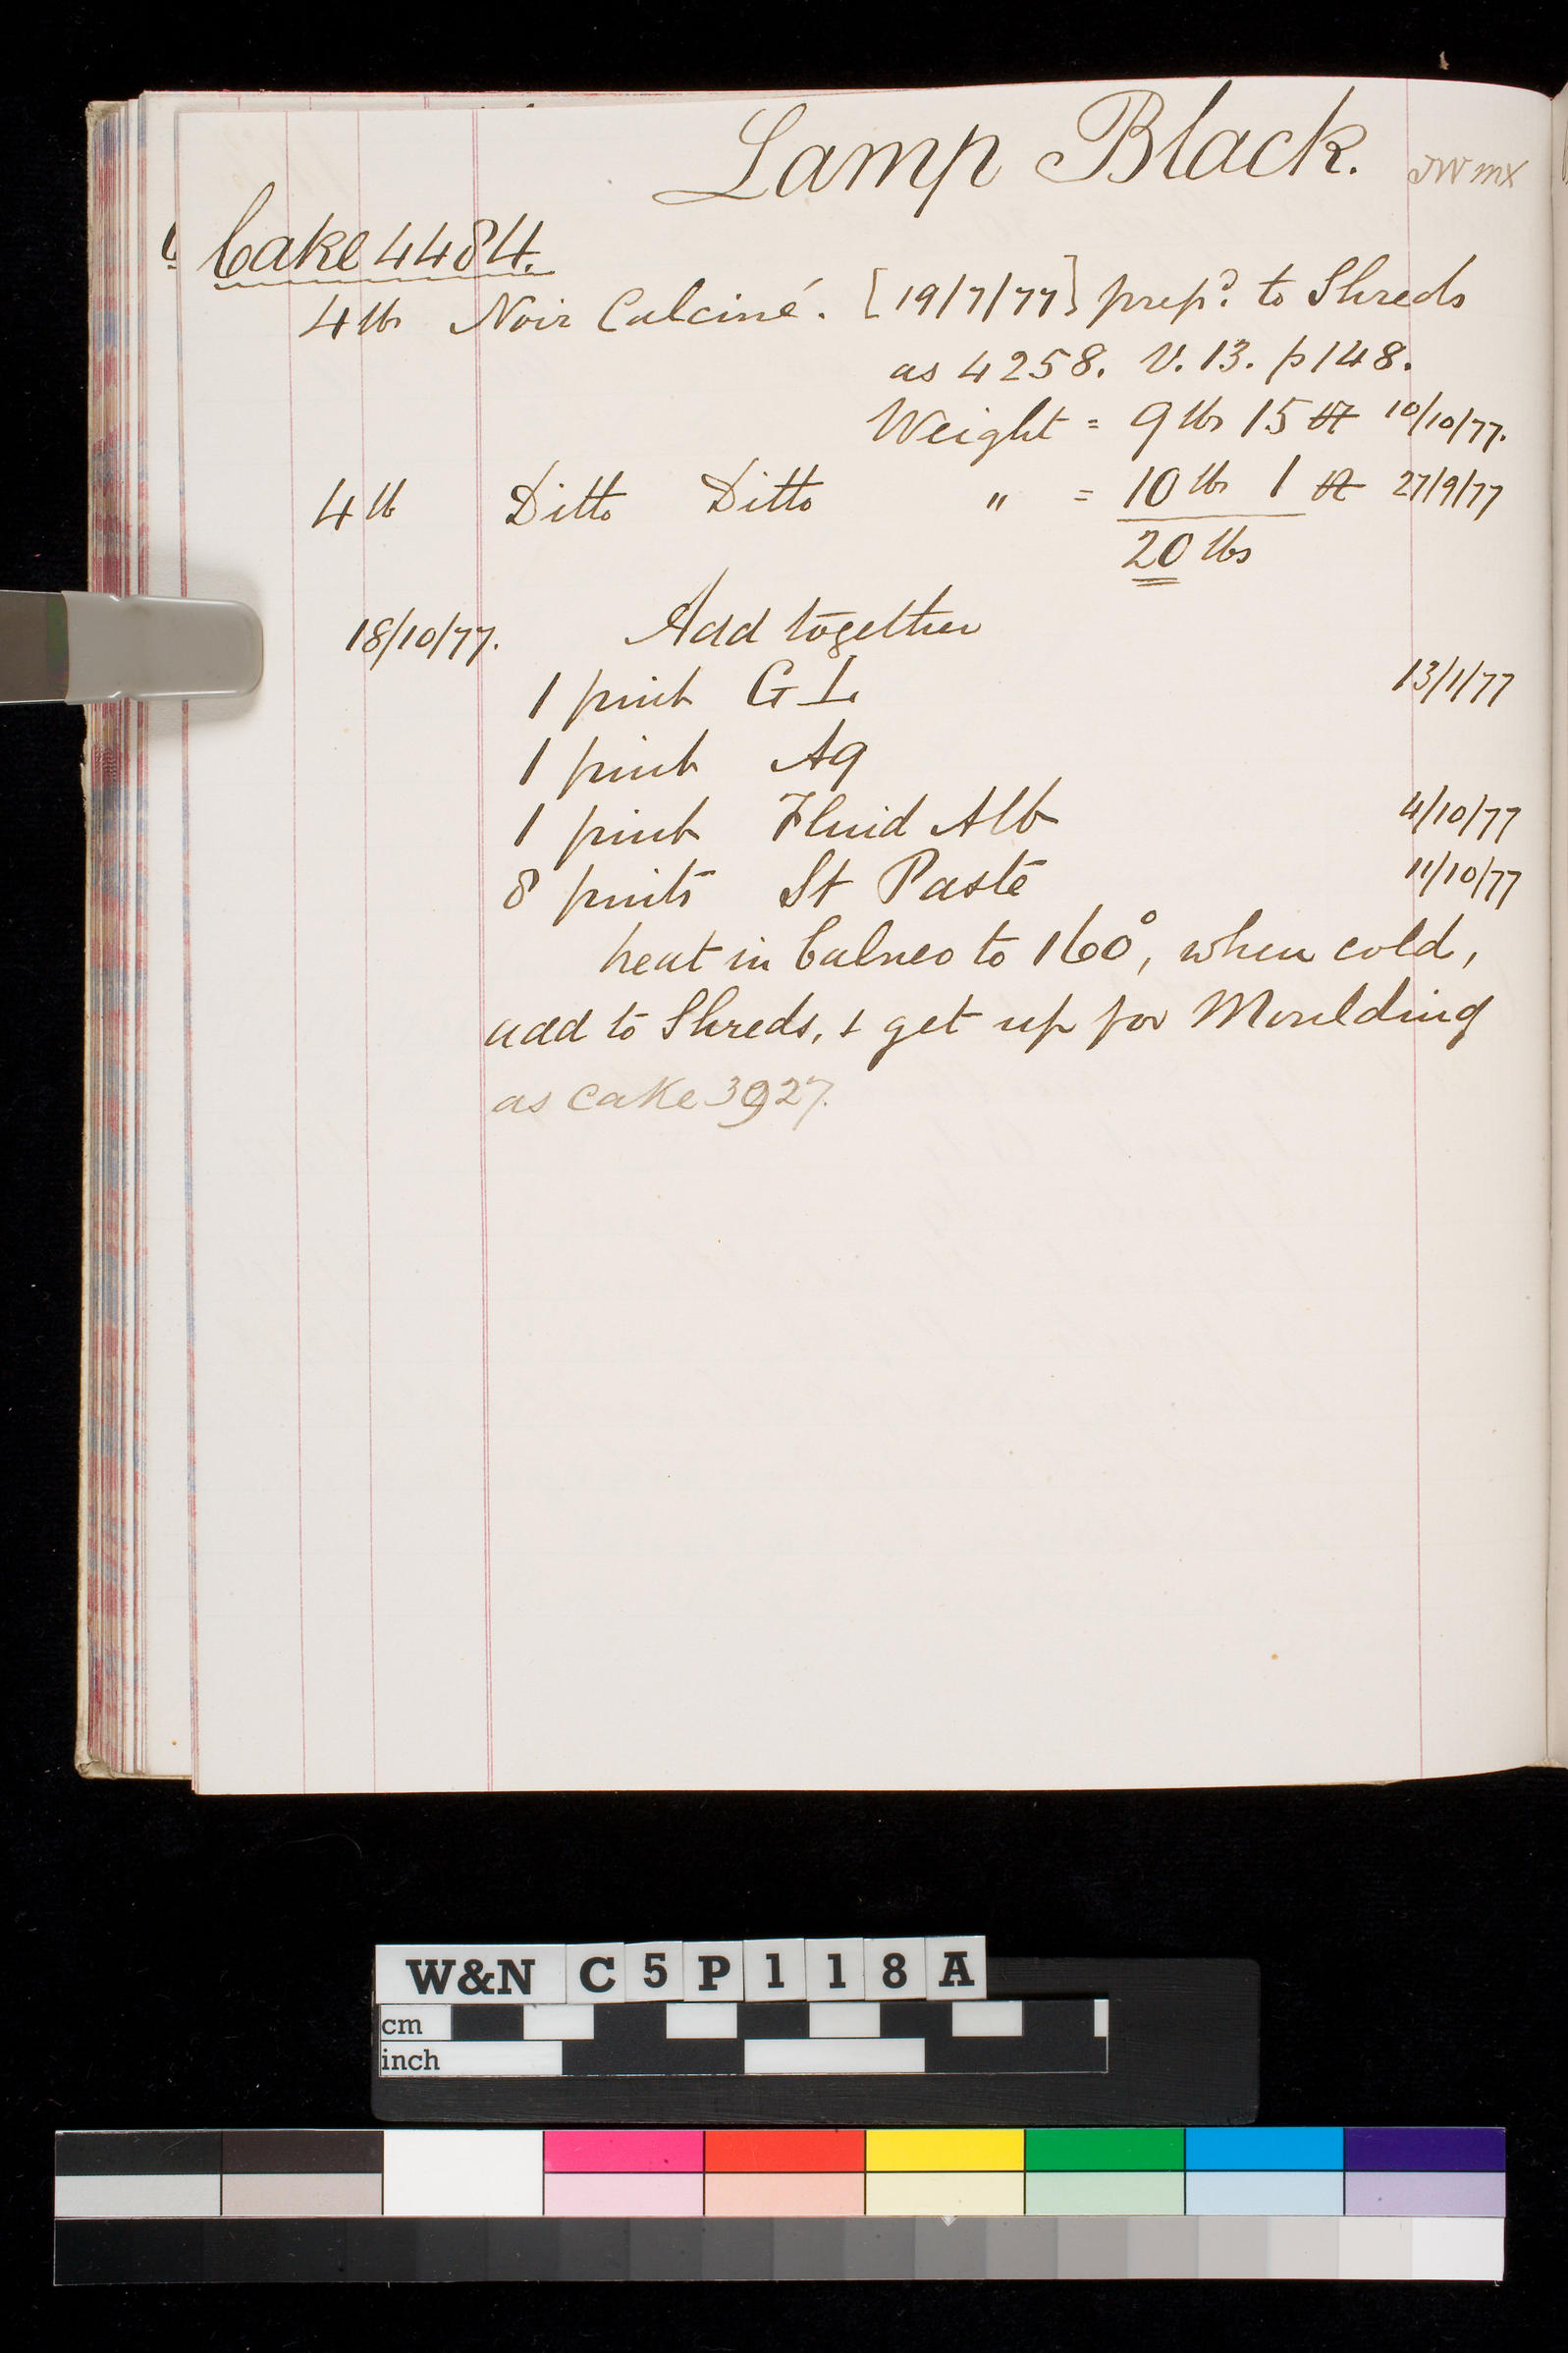 Lamp Black. JW mx
Cake 4484.
4 lb Noir Calciné. [19/7/77] prepd. to Shreds
as 4258. V. 13. p 148.
Weight = 9 lbs 15 oz 10/10/77.
4 lb Ditto Ditto " = 10 lbs 1 oz 27/9/77
20 lbs
18/10/77. Add together
1 pint G L 13/1/77
1 pint Aq
1 pint Fluid Alb 4/10/77
8 pints St Paste 11/10/77
heat in balneo to 160°, when cold,
add to Shreds, & get up for Moulding
as cake 3927.
W&N C5P118A
cm
inch